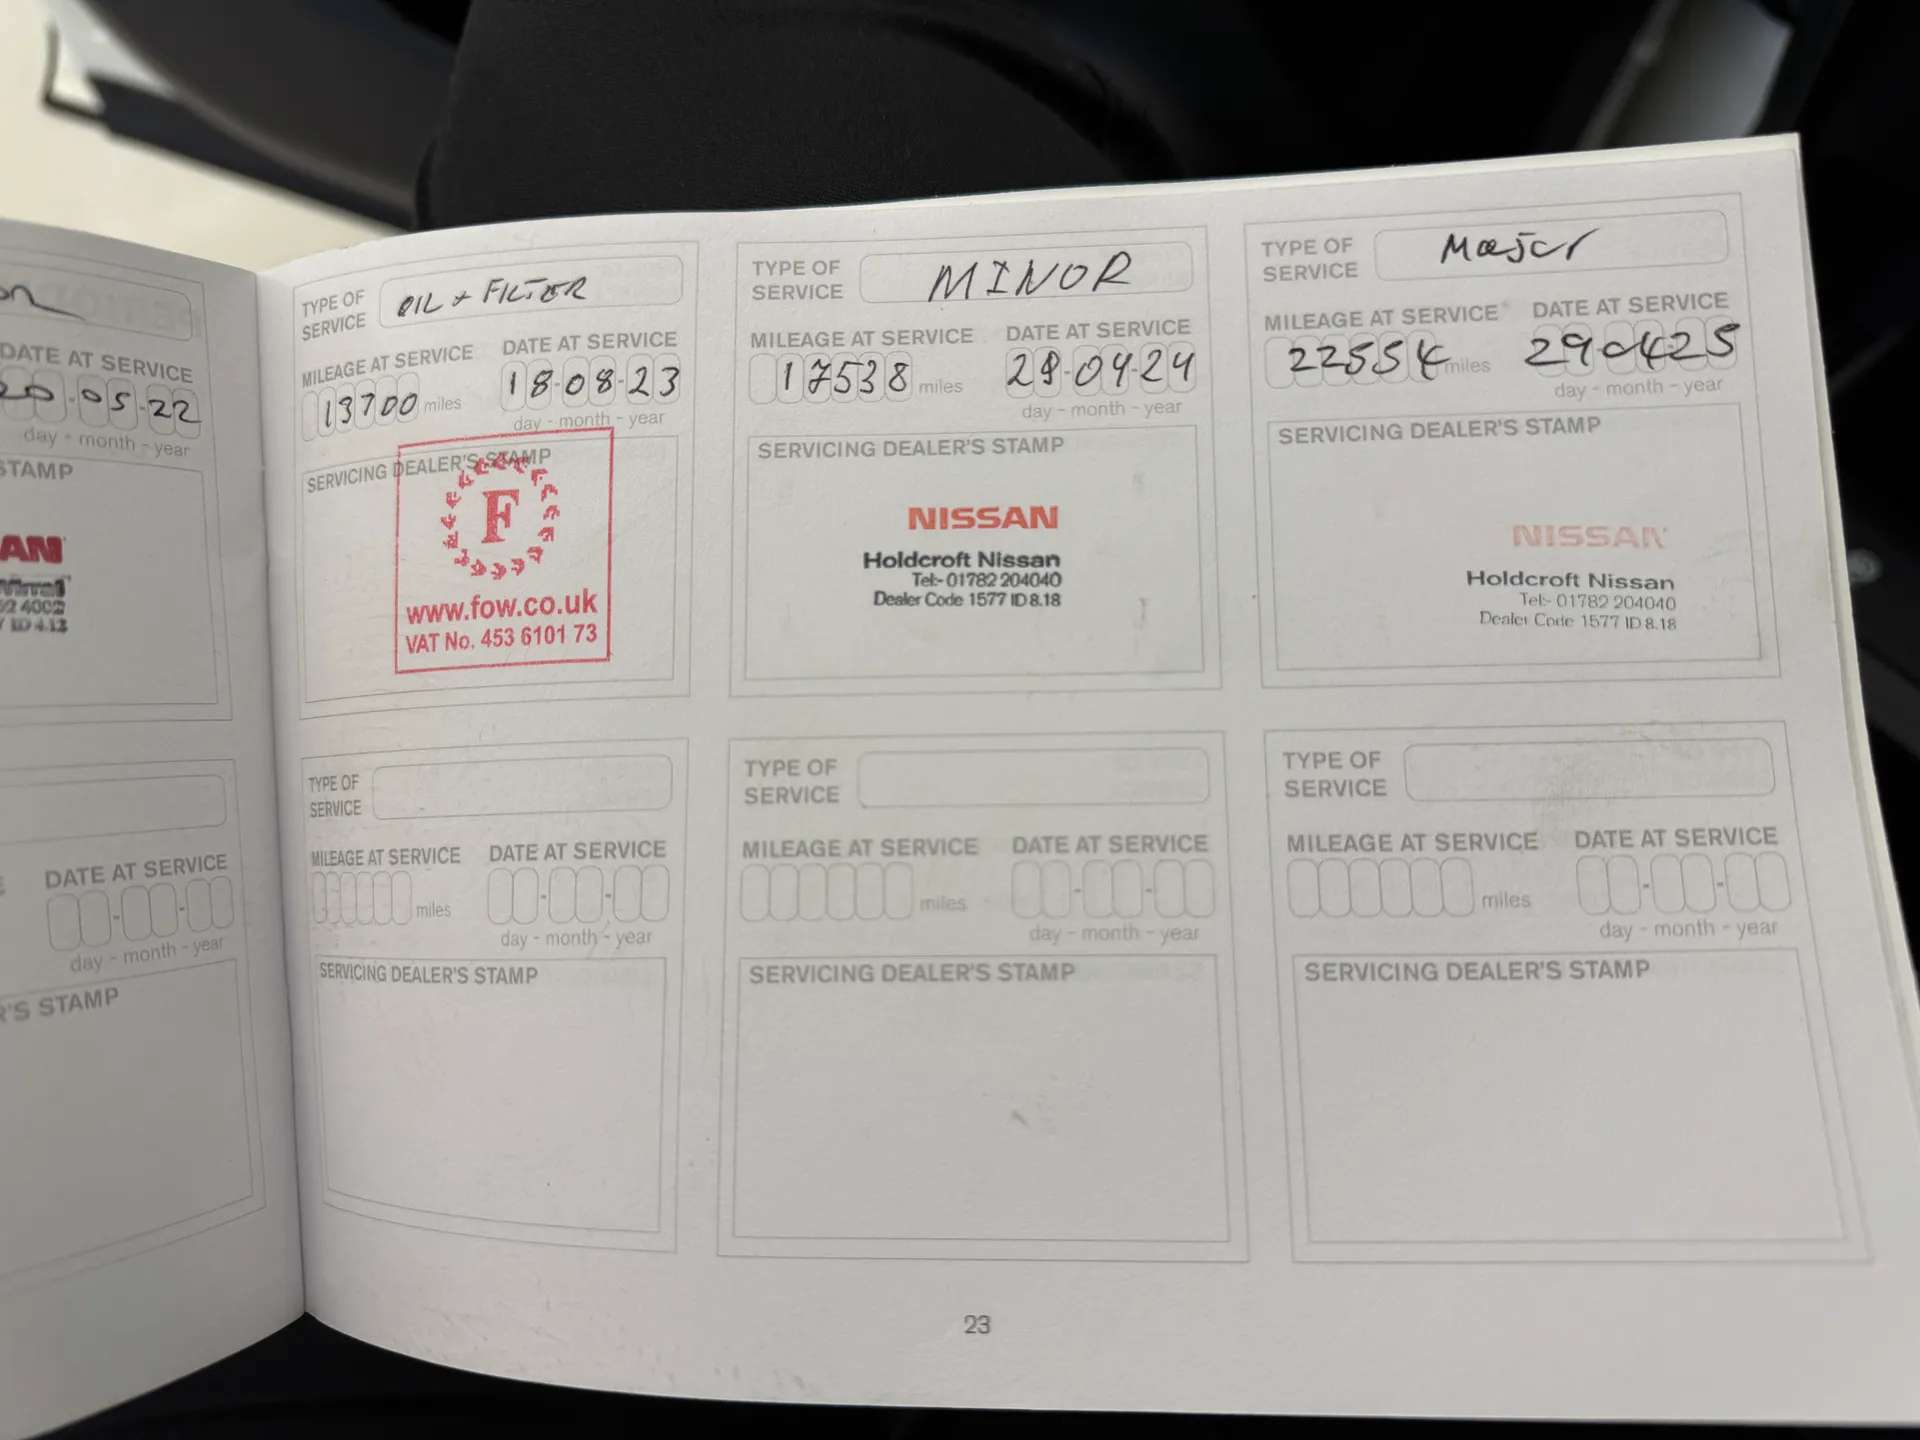 DATE AT SERVICE
20-05-22
day - month - year
STAMP
AN
DATE AT SERVICE
day - month - year
R'S STAMP
TYPE OF
SERVICE
OIL + FILTER
MILEAGE AT SERVICE
DATE AT SERVICE
13700 miles
18-08-23
day - month - year
SERVICING DEALER'S STAMP
F
www.fow.co.uk
VAT No. 453 6101 73
TYPE OF
SERVICE
MINOR
MILEAGE AT SERVICE
DATE AT SERVICE
17538 miles
29-04-24
day - month - year
SERVICING DEALER'S STAMP
NISSAN
Holdcroft Nissan
Tel:- 01782 204040
Dealer Code 1577 ID 8.18
TYPE OF
SERVICE
Major
MILEAGE AT SERVICE
DATE AT SERVICE
22554 miles
29-04-25
day - month - year
SERVICING DEALER'S STAMP
NISSAN
Holdcroft Nissan
Tel:- 01782 204040
Dealer Code 1577 ID 8.18
TYPE OF
SERVICE
MILEAGE AT SERVICE
DATE AT SERVICE
miles
day - month - year
SERVICING DEALER'S STAMP
TYPE OF
SERVICE
MILEAGE AT SERVICE
DATE AT SERVICE
miles
day - month - year
SERVICING DEALER'S STAMP
TYPE OF
SERVICE
MILEAGE AT SERVICE
DATE AT SERVICE
miles
day - month - year
SERVICING DEALER'S STAMP
23